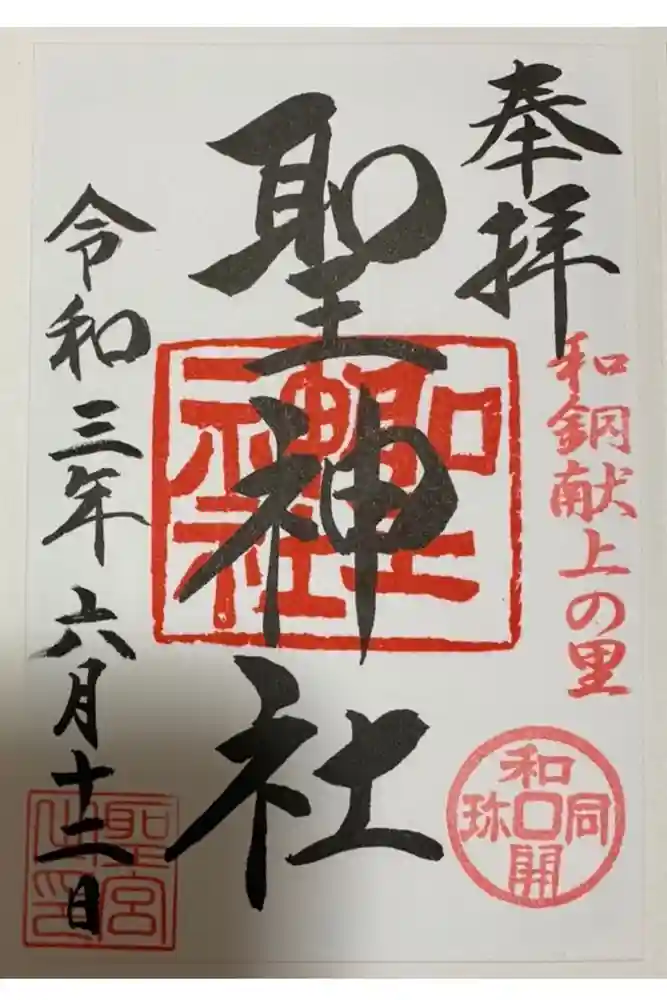 奉拝
和銅献上の里
和同開珎
聖神社
聖神社
令和三年六月十二日
聖宮